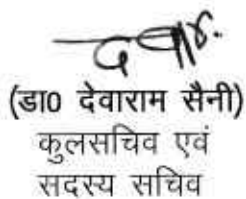 (डा0 देवाराम सैनी)
कुलसचिव एवं
सदस्य सचिव